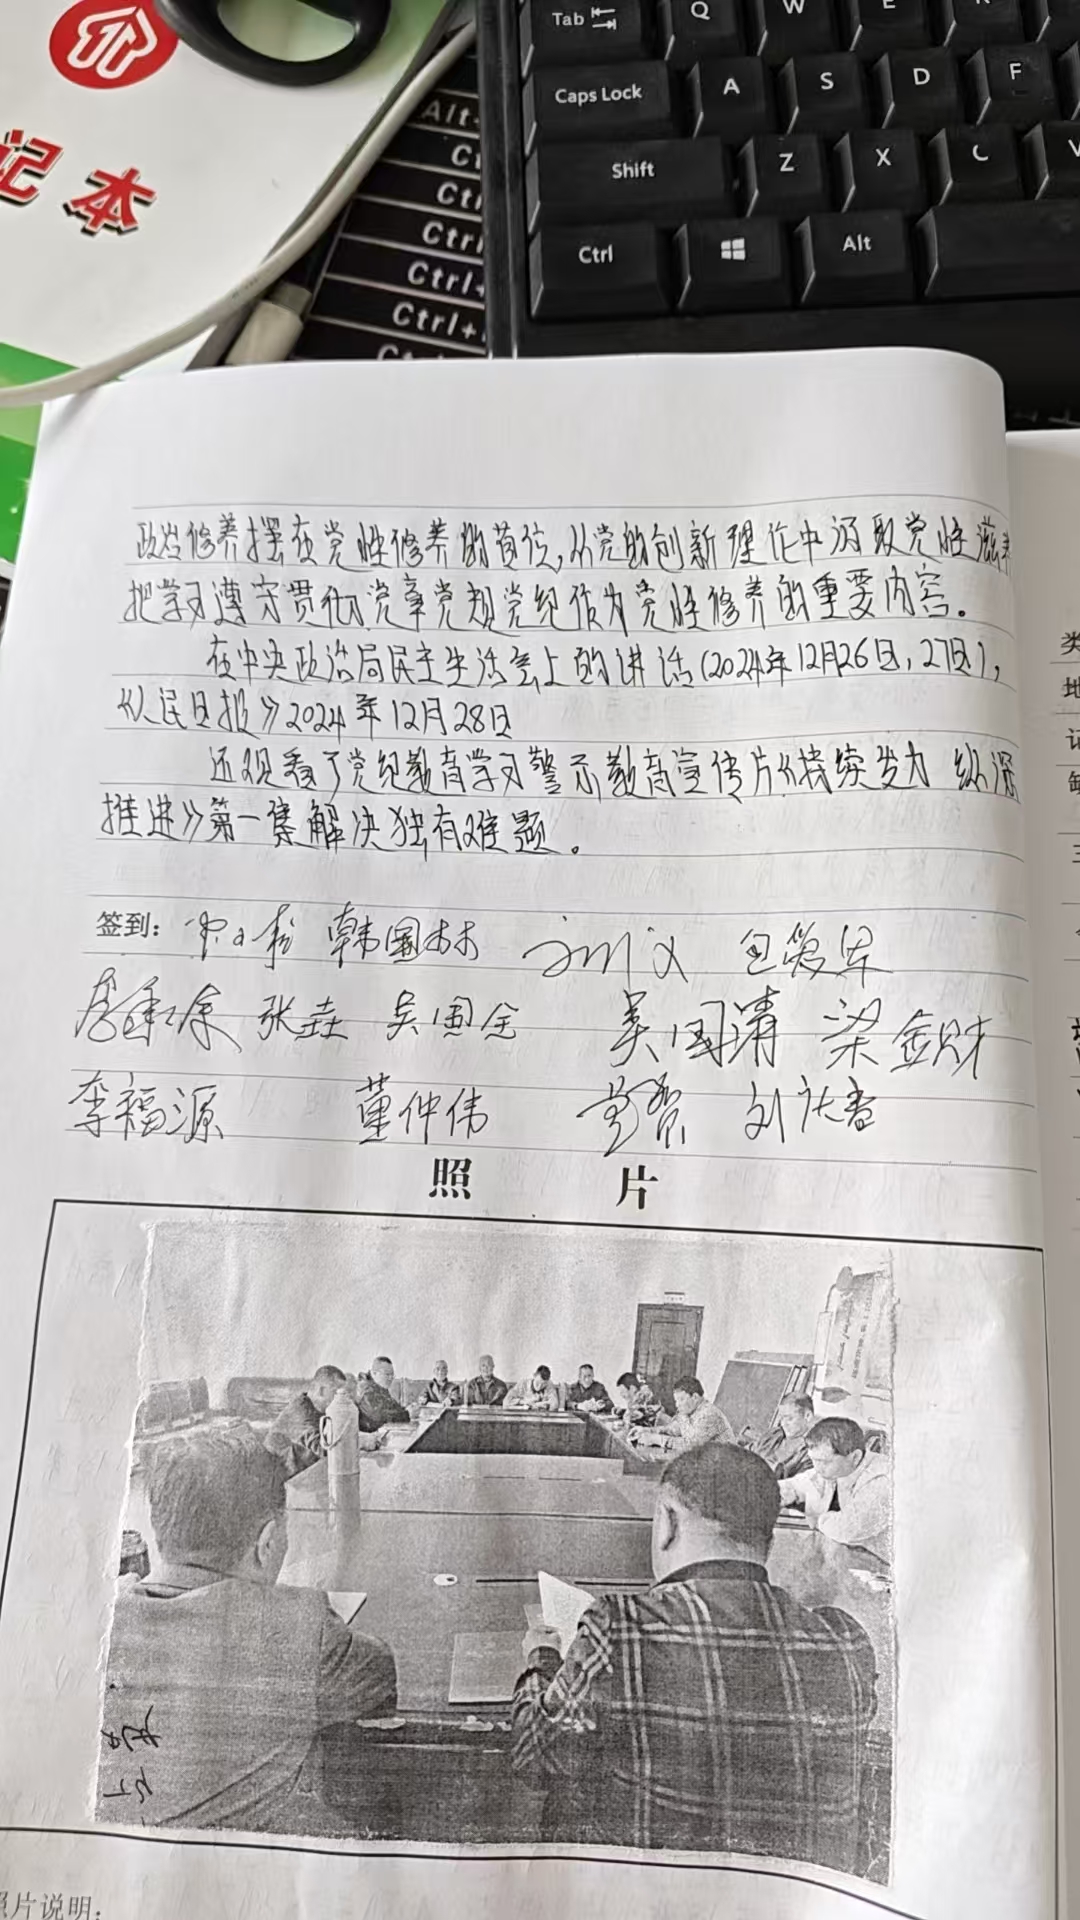 记本
Tab Q W E
Caps Lock A S D F
Shift Z X C V
Ctrl Alt
Alt
Ctrl
Ctrl+
Ctrl+
政治修养摆在党性修养的首位,从党的创新理论中汲取党性滋养
把学习遵守贯彻党章党规党纪作为党性修养的重要内容。
在中央政治局民主生活会上的讲话(2024年12月26日,27日),
《人民日报》2024年12月28日
还观看了党纪教育学习警示教育宣传片《持续发力 纵深
推进》第一集解决独有难题。
签到: 韩国林 包爱军
张垚 吴国全 吴国清 梁金财
李福源 董仲伟
照 片
照片说明: